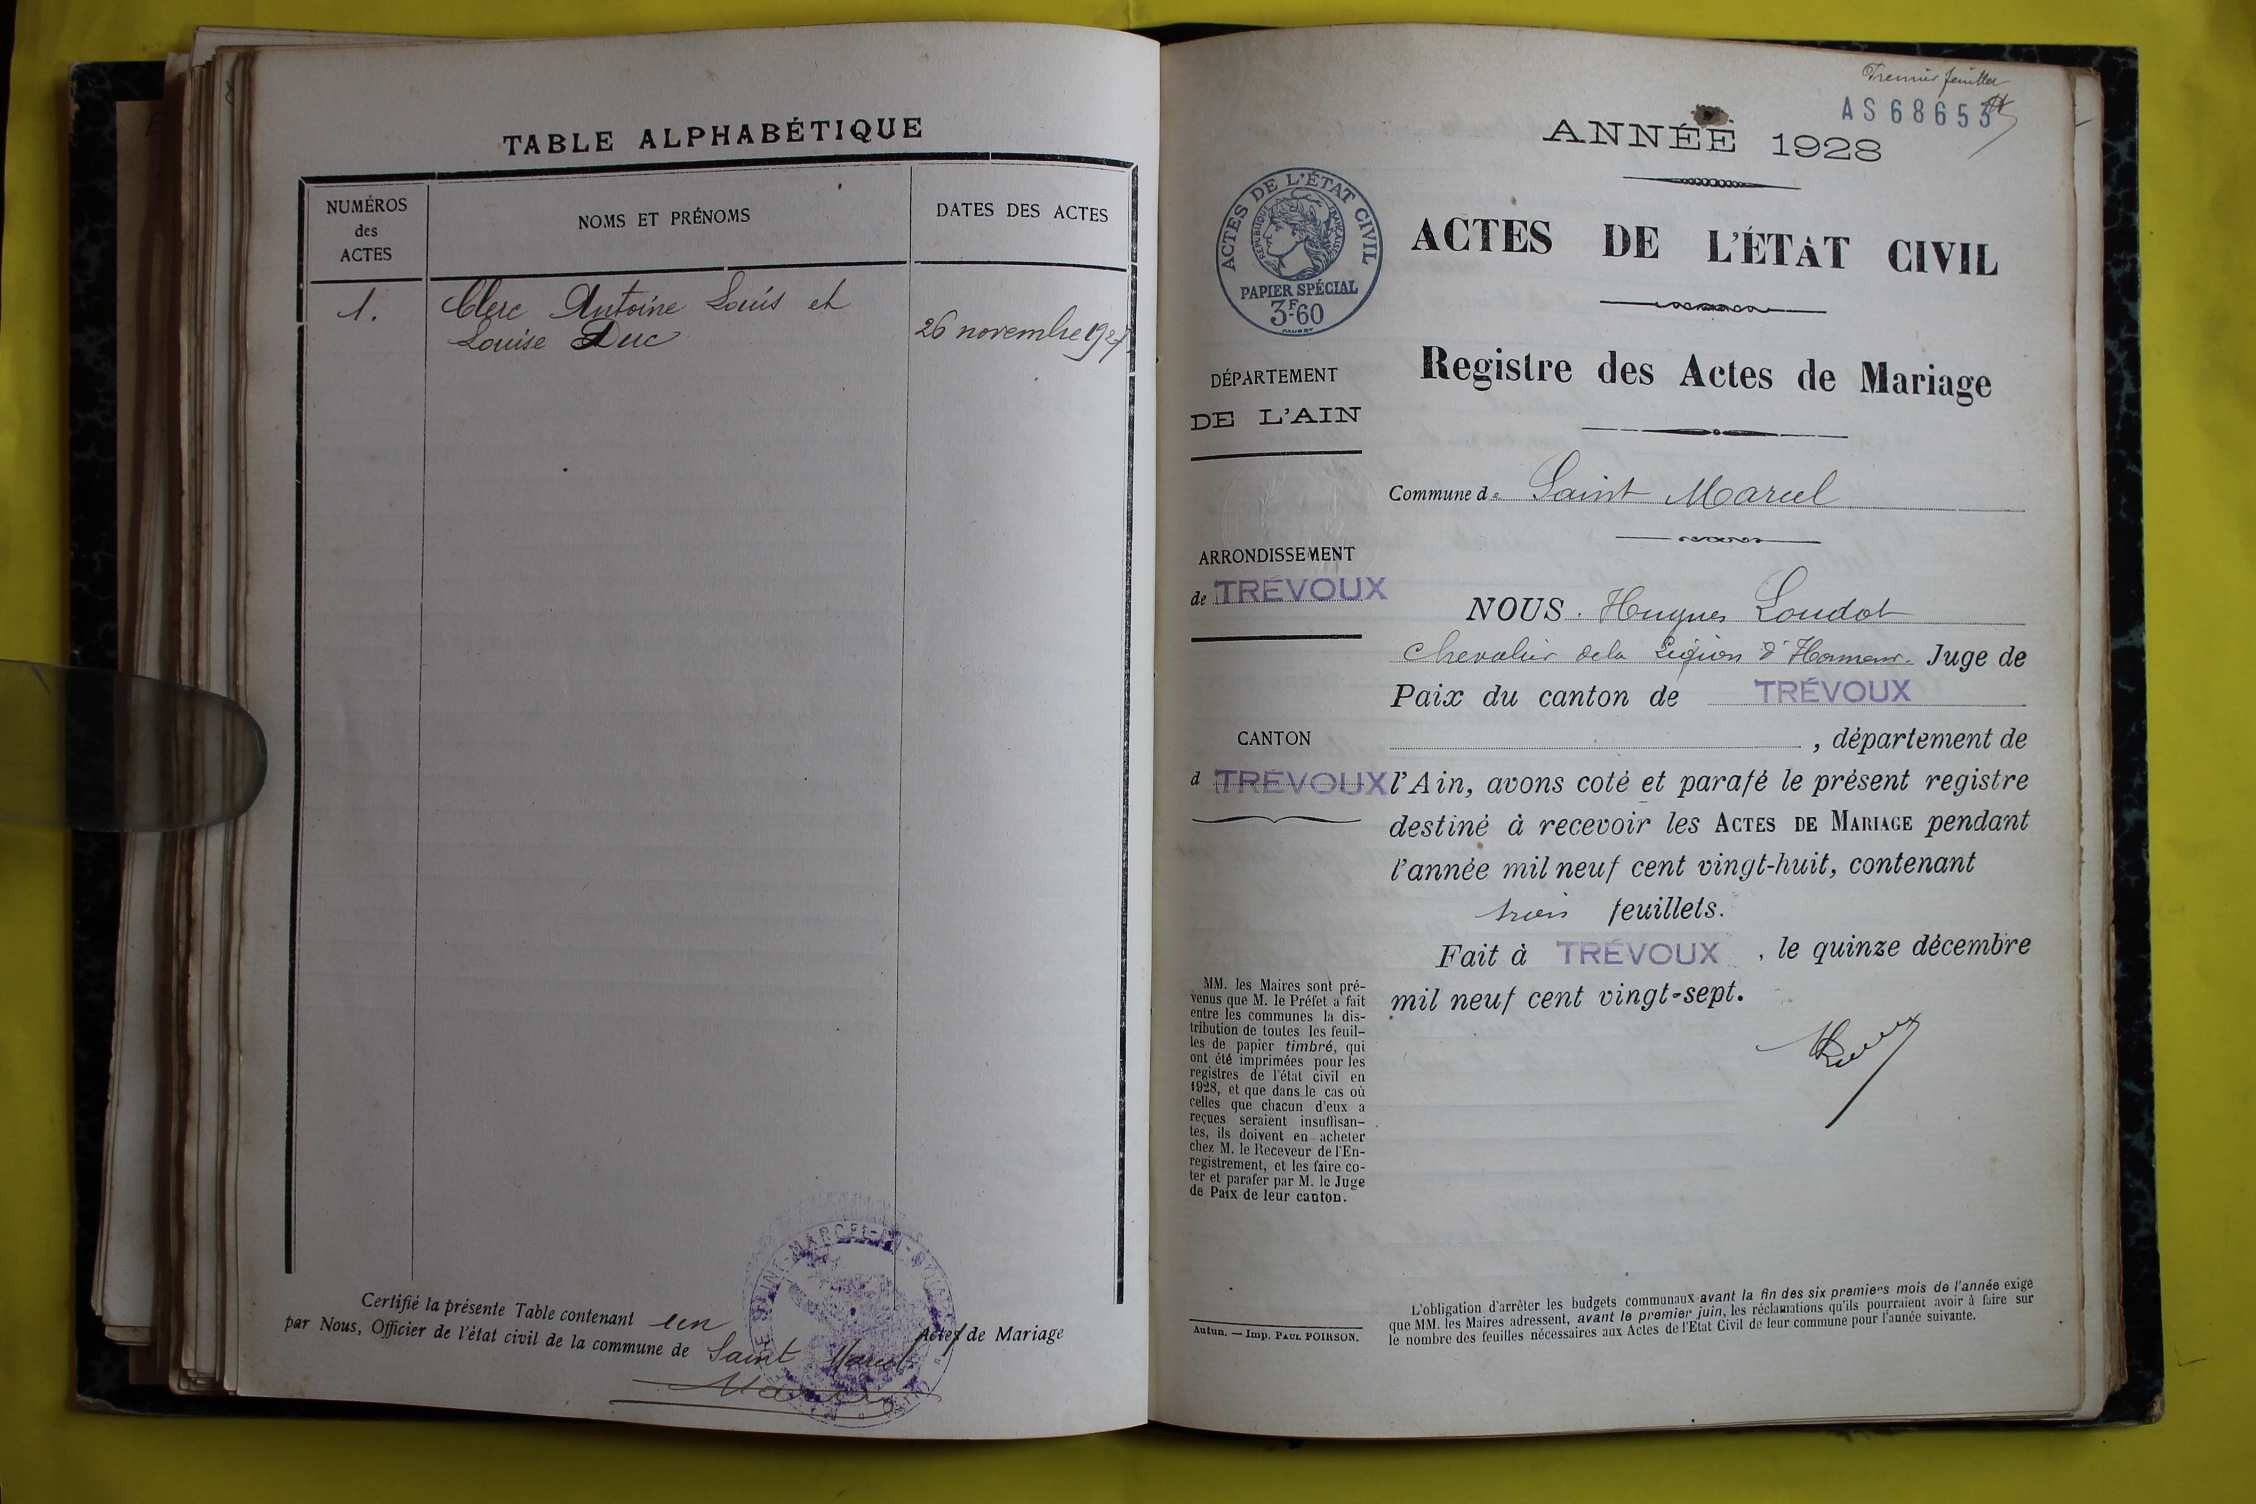 TABLE ALPHABÉTIQUE
NUMÉROS
des
ACTES
NOMS ET PRÉNOMS
DATES DES ACTES
1. Clerc Antoine Louis et
Louise Duc
26 novembre 1927
Certifié la présente Table contenant un Actes de Mariage
par Nous, Officier de l'état civil de la commune de Saint Marcel
Premier feuillet
AS68653
ANNÉE 1928
ACTES DE L'ÉTAT CIVIL
RÉPUBLIQUE FRANÇAISE
PAPIER SPÉCIAL
3F.60
ACTES DE L'ÉTAT CIVIL
Registre des Actes de Mariage
DÉPARTEMENT
DE L'AIN
Commune de Saint Marcel
ARRONDISSEMENT
de TRÉVOUX
NOUS. Hugues Loudot
Chevalier de la Légion d'Honneur. Juge de
Paix du canton de TRÉVOUX
CANTON
d TRÉVOUX
, département de
l'Ain, avons coté et parafé le présent registre
destiné à recevoir les ACTES DE MARIAGE pendant
l'année mil neuf cent vingt-huit, contenant
trois feuillets.
Fait à TRÉVOUX, le quinze décembre
mil neuf cent vingt-sept.
MM. les Maires sont pré-
venus que M. le Préfet a fait
entre les communes la dis-
tribution de toutes les feuil-
les de papier timbré, qui
ont été imprimées pour les
registres de l'état civil en
1928, et que dans le cas où
celles que chacun d'eux a
reçues seraient insuffisan-
tes, ils doivent en acheter
chez M. le Receveur de l'En-
registrement, et les faire co-
ter et parafer par M. le Juge
de Paix de leur canton.
Autun. — Imp. PAUL POIRSON.
L'obligation d'arrêter les budgets communaux avant la fin des six premiers mois de l'année exige
que MM. les Maires adressent, avant le premier juin, les réclamations qu'ils pourraient avoir à faire sur
le nombre des feuilles nécessaires aux Actes de l'Etat Civil de leur commune pour l'année suivante.